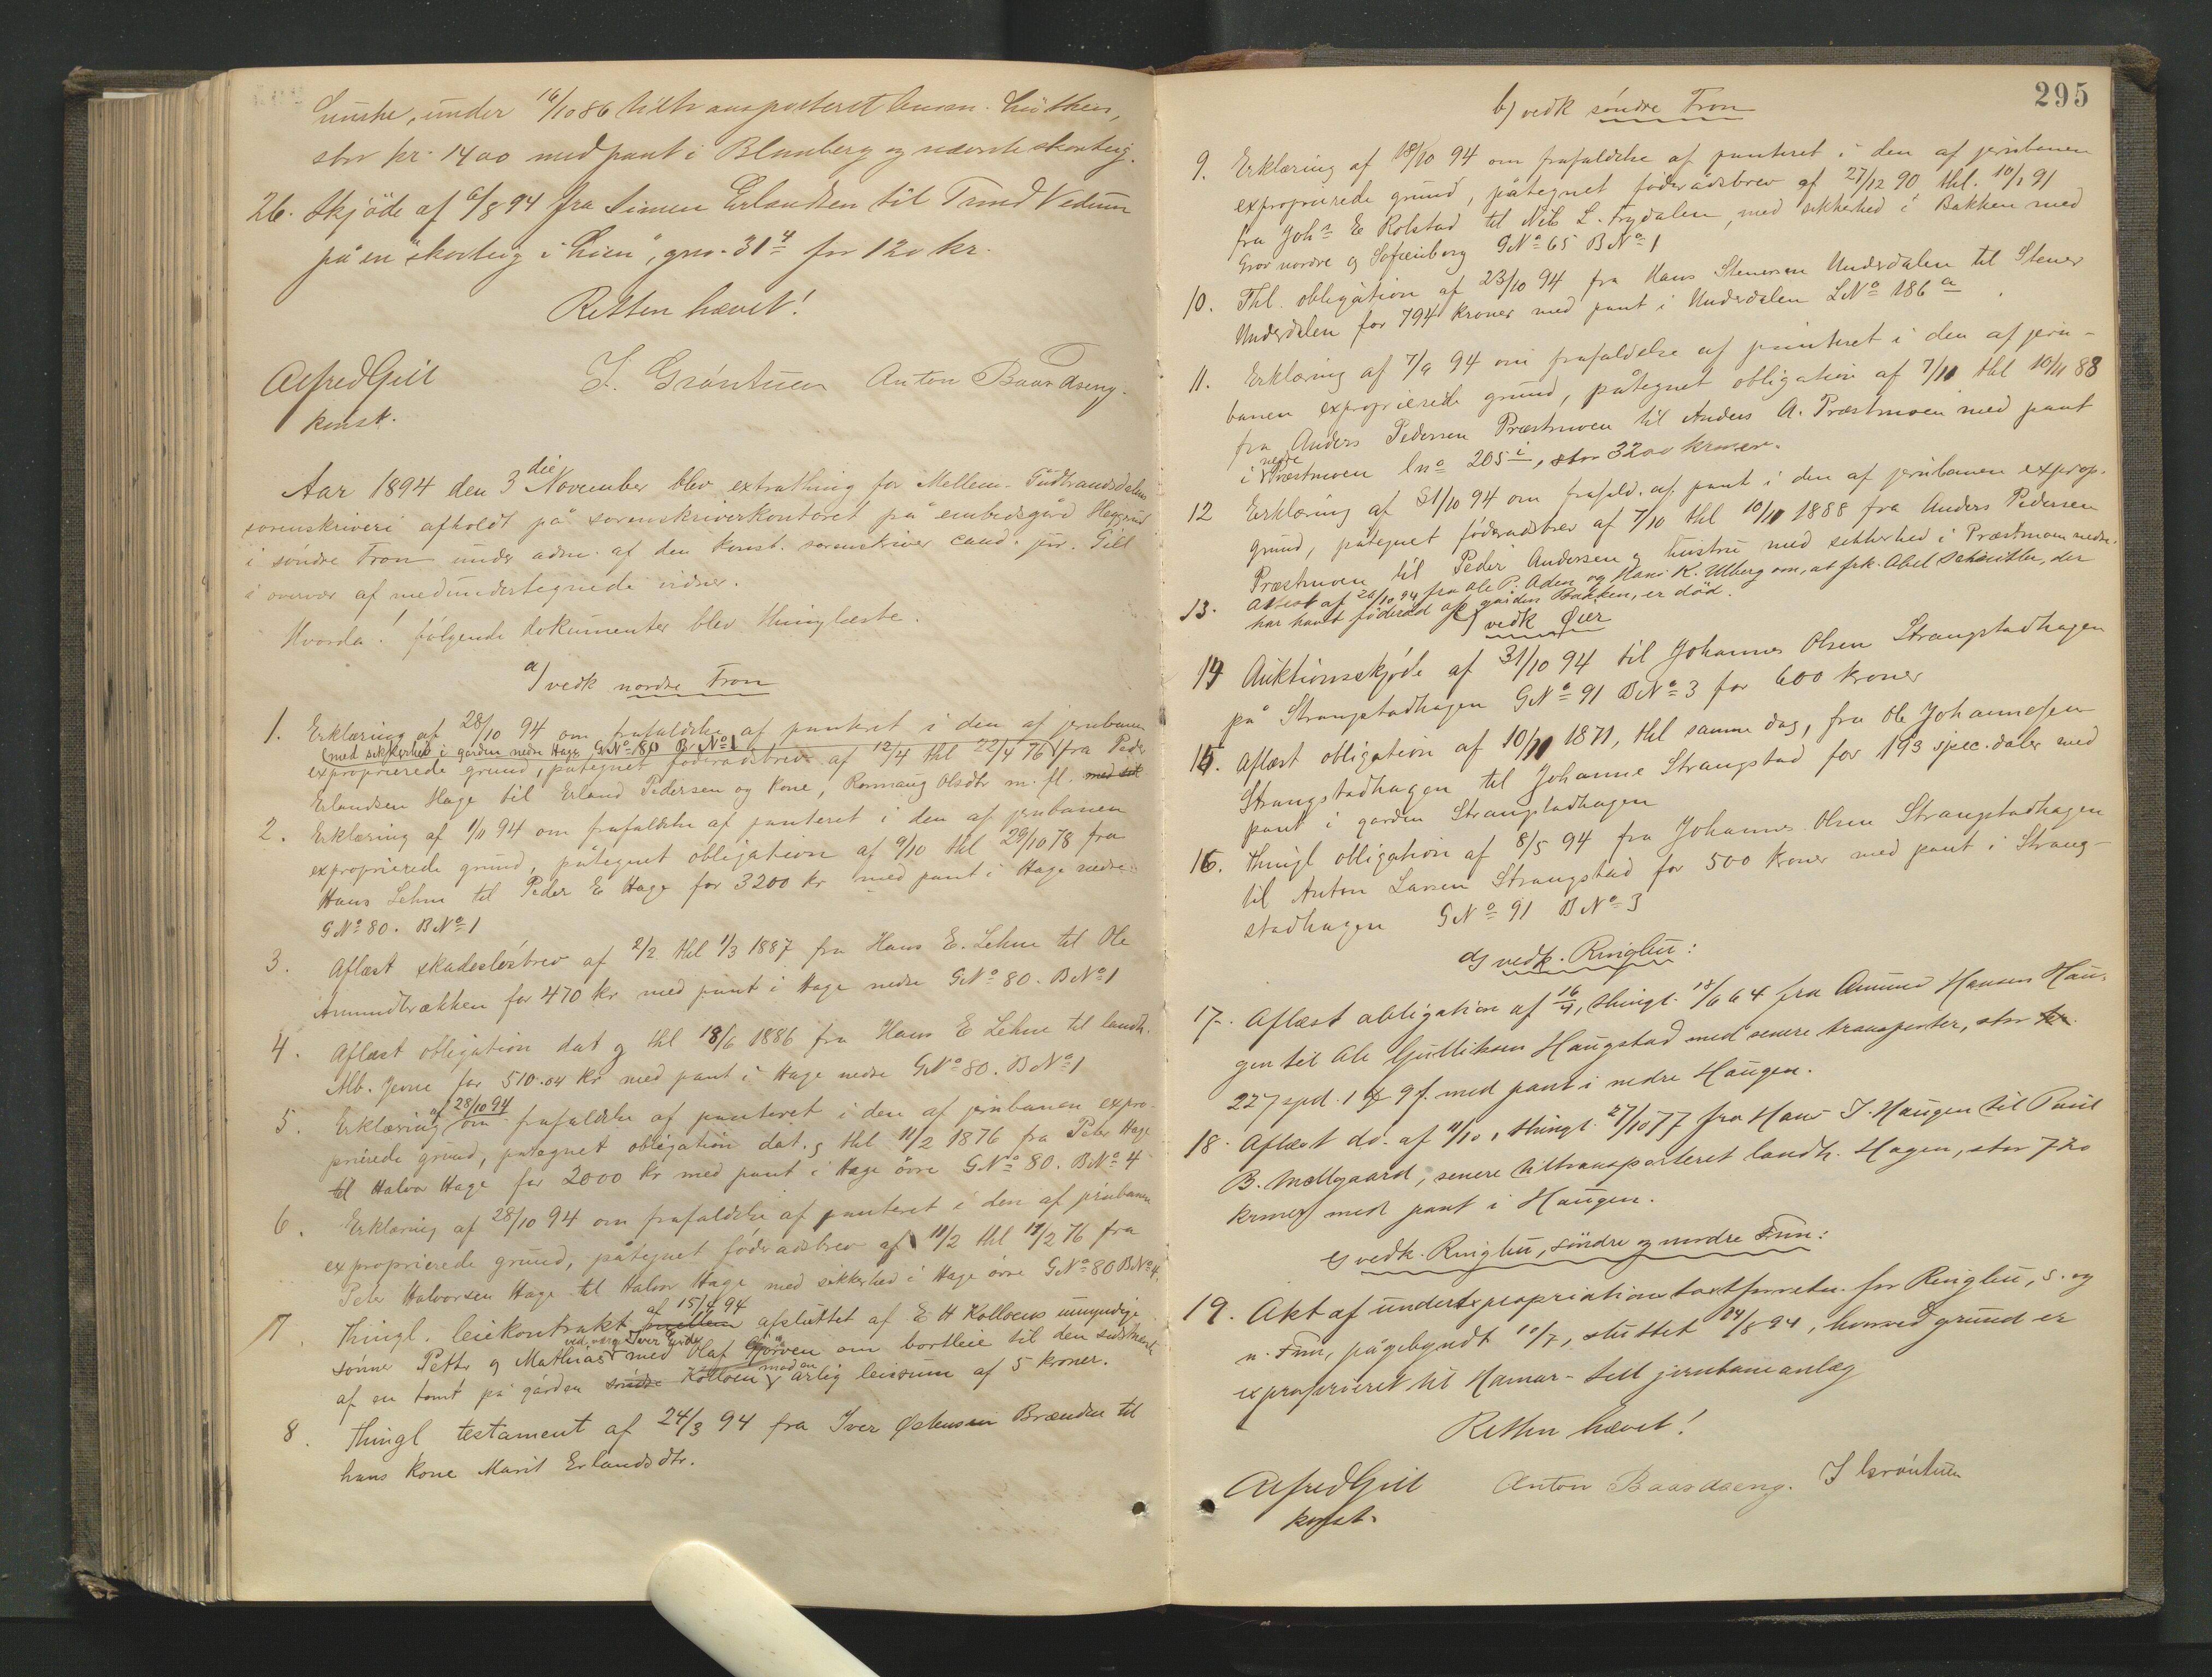 under 16/10 86 tiltransporteret
stor kr. 1400 med pant i Blumberg og nævnte skovteig.
26. Skjöde af 6/8 94 fra Simen Erlandsen til Trond Vedum
på en "skovteig i Lien", gno. 31 4 for 120 kr.
Retten hævet!
Alfred Gill
konst.
J. Gröntuen Anton Baardseng.
Aar 1894 den 3die November blev extrathing for Mellem-Gudbrandsdalens
sorenskriveri afholdt på sorenskriverkontoret på embedsgård Heggrud
i söndre Fron under adm. af den konst. sorenskriver cand. jur. Gill
i overvær af medundertegnede vidner.
Hvorda! fölgende dokumenter blev thinglæste.
a) vedk nordre Fron
1. Erklæring af 28/10 94 om frafaldelse af panteret i den af jernbanen
(med sikkerhed i gården nedre Hage GNo 80 BNo 1
exproprierede grund, påtegnet föderådsbrev af 12/4 thl 22/4 76 fra Peder
Erlandsen Hage til Erland Pedersen og kone, Ronnaug Olsdtr m. fl. med sik
2. Erklæring af 1/11 94 om frafaldelse af panteret i den af jernbanen
exproprierede grund, påtegnet obligation af 9/10 thl 29/10 78 fra
Hans Lehne til Peder E Hage for 3200 kr med pant i Hage nedre
GNo 80. BNo 1
3. Aflæst skadeslösbrev af 2/2 thl 1/3 1887 fra Hans E. Lehne til Ole
Amundbrækken for 470 kr med pant i Hage nedre GNo 80. BNo 1
4. Aflæst obligation dat og thl 18/6 1886 fra Hans E Lehne til landh.
Alb. Jevne for 510.04 kr med pant i Hage nedre GNo 80. BNo 1
5. Erklæring af 28/10 94 om frafaldelse af panteret i den af jernbanen expro-
prierede grund, påtegnet obligation dat. og thl 11/2 1876 fra Peter Hage
til Halvor Hage for 2000 kr med pant i Hage övre GNo 80. BNo 4
6. Erklæring af 28/10 94 om frafaldelse af panteret i den af jernbanen
exproprierede grund, påtegnet föderådsbrev af 11/2 thl 11/2 76 fra
Peter Halvorsen Hage til Halvor Hage med sikkerhed i Hage övre GNo 80 BNo 4.
7. Thingl. leiekontrakt mellem af 15/4 94 afsluttet af E H Kolloens umyndige
sönner Petter og Mathias ved værge Iver med Olaf Gjörven om bortleie til den sidstnævnte
af en tomt på gården söndre Kolloen mod en årlig leiesum af 5 kroner.
8. Thingl testament af 24/3 94 fra Iver Östensen Brænden til
hans kone Marit Erlandsdtr.
295
b) vedk söndre Fron
9. Erklæring af 18/10 94 om frafaldelse af panteret i den af jernbanen
exproprierede grund, påtegnet föderådsbrev af 27/12 90 thl. 10/1 91
fra Johs E Rolstad til Nils L. Frydalen, med sikkerhed i Bakken med
Grov nordre og Sofienborg GNo 65 BNo 1
10. Thl. obligation af 23/10 94 fra Hans Stenersen Undersdalen til Stener
Undersdalen for 794 kroner med pant i Undersdalen LNo 186 a.
11. Erklæring af 7/9 94 om frafaldelse af panteret i den af jern-
banen exproprierede grund, påtegnet obligation af 7/11 thl 10/11 88
fra Anders Pedersen Præstmoen til Anders A. Præstmoen med pant
i nedre Præstmoen lno 205 i, stor 3200 kroner.
12 Erklæring af 31/10 94 om frafald. af pant i den af jernbanen exprop.
grund, påtegnet föderådsbrev af 7/10 thl 10/11 1888 fra Anders Pedersen
Præstmoen til Peder Andersen og hustru med sikkerhed i Præstmoen nedre.
13. Attest af 28/10 94 fra Ole P. Aden og Hans K. Ulberg om, at frk. Abel Schöitler, der
har havt föderåd af gården Bakken, er död.
c) vedk Öier
14 Auktionsskjöde af 31/10 94 til Johannes Olsen Strangstadhagen
på Strangstadhagen GNo 91 BNo 3 for 600 kroner
15. Aflæst obligation af 10/11 1871, thl samme dag, fra Ole Johannesen
Strangstadhagen til Johanne Strangstad for 193 spec.daler med
pant i gården Strangstadhagen
16. Thingl obligation af 8/5 94 fra Johannes Olsen Strangstadhagen
til Anton Larsen Strangstad for 500 kroner med pant i Strang-
stadhagen GNo 91 BNo 3
d) vedk. Ringbu:
17. Aflæst obligation af 16/4, thingl. 18/6 64 fra Amund Hansen Hau-
gen til Ole Gulliksen Haugstad med senere transporter, stor kr
227 spd. 1 9 s. med pant i nedre Haugen.
18. Aflæst do. af 11/10, thingl. 27/10 77 fra Hans J. Haugen til Paul
B. Mællgaard, senere tiltransporteret landh. Hagen, stor 720
kroner med pant i Haugen.
e) vedk. Ringbu, söndre og nordre Fron:
19. Akt af underexpropriationstaxtforretn. for Ringbu, s. og
n. Fron, påbegyndt 10/7, sluttet 24/8 94, hvorved grund er
exproprieret til Hamar-Sell jernbaneanlæg
Retten hævet!
Alfred Gill
konst.
Anton Baardseng. J Gröntuen